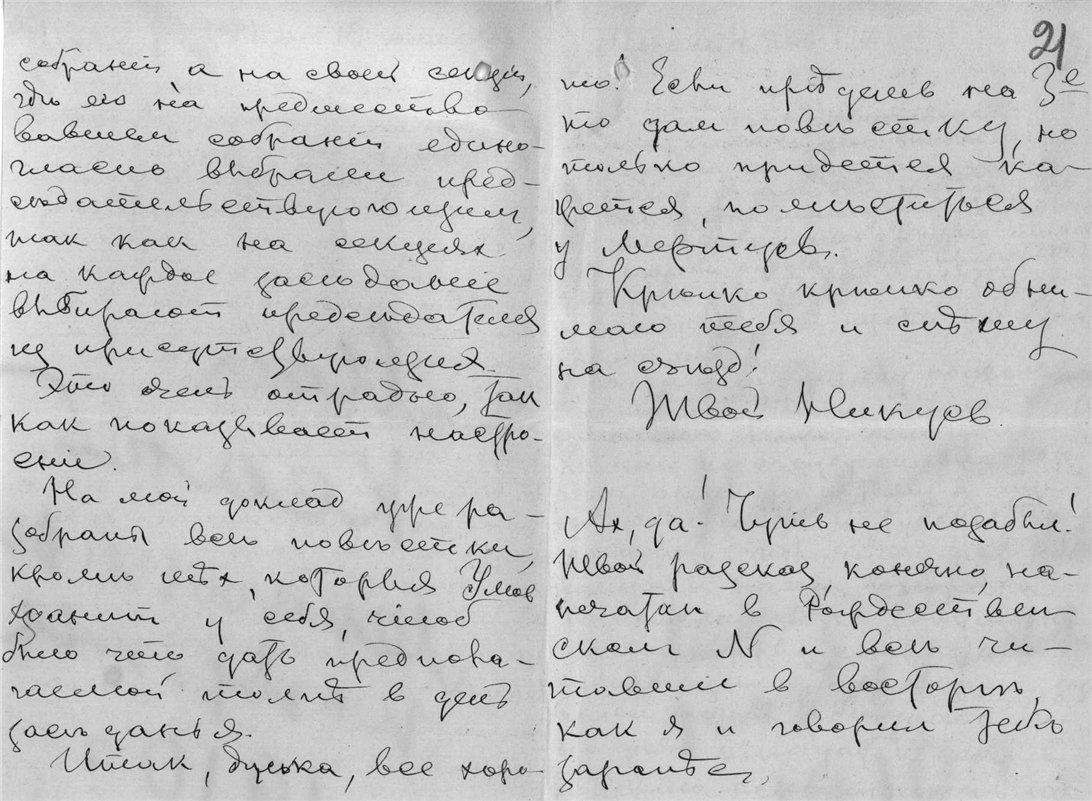 собраніи, а на своей секціи,
гдѣ его на предшество-
вавшем собраніи едино-
гласно выбрали пред-
сѣдательствующим,
так как на секціях
на каждое засѣданіе
выбирают предсѣдателя
из присутствующих.
Это очень отрадно, так
как показывает настро-
еніе.
На мой доклад уже ра-
зобраны всѣ повѣстки,
кромѣ тѣх, которыя Умов
хранит у себя, чтоб
было что дать предпола-
гаемой толпѣ в день
засѣданья.
Итак, дуська, все хоро-
21
шо! Если пріѣдешь на 3е
то дам повѣстку, но
только придется ка-
жется, помѣститься
у Мертцов.
Крѣпко крѣпко обни-
маю тебя и спѣшу
на съѣзд!
Твой Никуев
Ах, да! Чуть не позабыл!
Твой разсказ, конечно, на-
печатан в Рождествен
ском N и всѣ чи-
тавшіе в восторгѣ,
как я и говорил тебѣ
заранѣе,